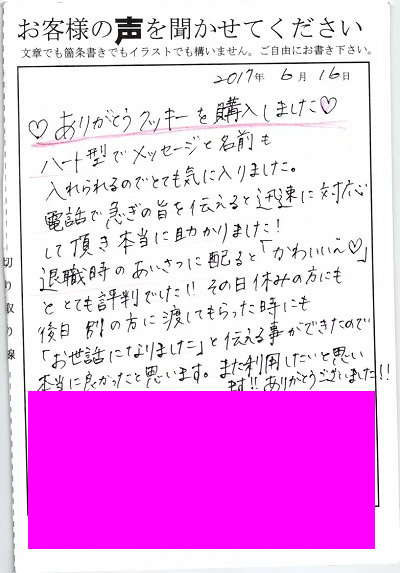 お客様の声を聞かせてください
文章でも箇条書きでもイラストでも構いません。ご自由にお書き下さい。
2017年 6月 16日
♡ ありがとうクッキーを購入しました♡
ハート型でメッセージと名前も
入れられるのでとても気に入りました。
電話で急ぎの旨を伝えると迅速に対応
して頂き本当に助かりました!
退職時のあいさつに配ると「かわいいへ♡」
ととても評判でした!! その日休みの方にも
後日 別の方に渡してもらった時にも
「お世話になりました」と伝える事ができたので
本当に良かったと思います。また利用したいと思い
ます!! ありがとうございました!!
切り取り線